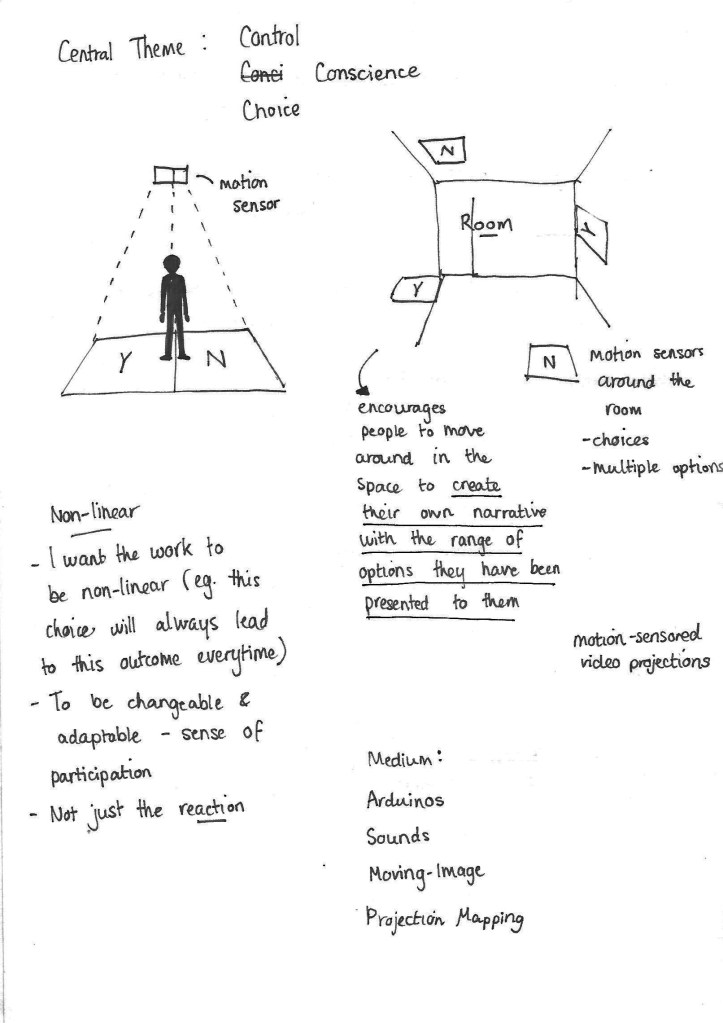 Central Theme : Control
Conci Conscience
Choice
motion
sensor
Y N
N
Room
Y
Y
N
Motion sensors
around the
room
-choices
-multiple options
encourages
people to move
around in the
space to create
their own narrative
with the range of
options they have been
presented to them
Non-linear
- I want the work to
be non-linear (eg. this
choice, will always lead
to this outcome everytime)
- To be changeable &
adaptable - sense of
participation
- Not just the reaction
motion-sensored
video projections
Medium:
Arduinos
Sounds
Moving-Image
Projection Mapping